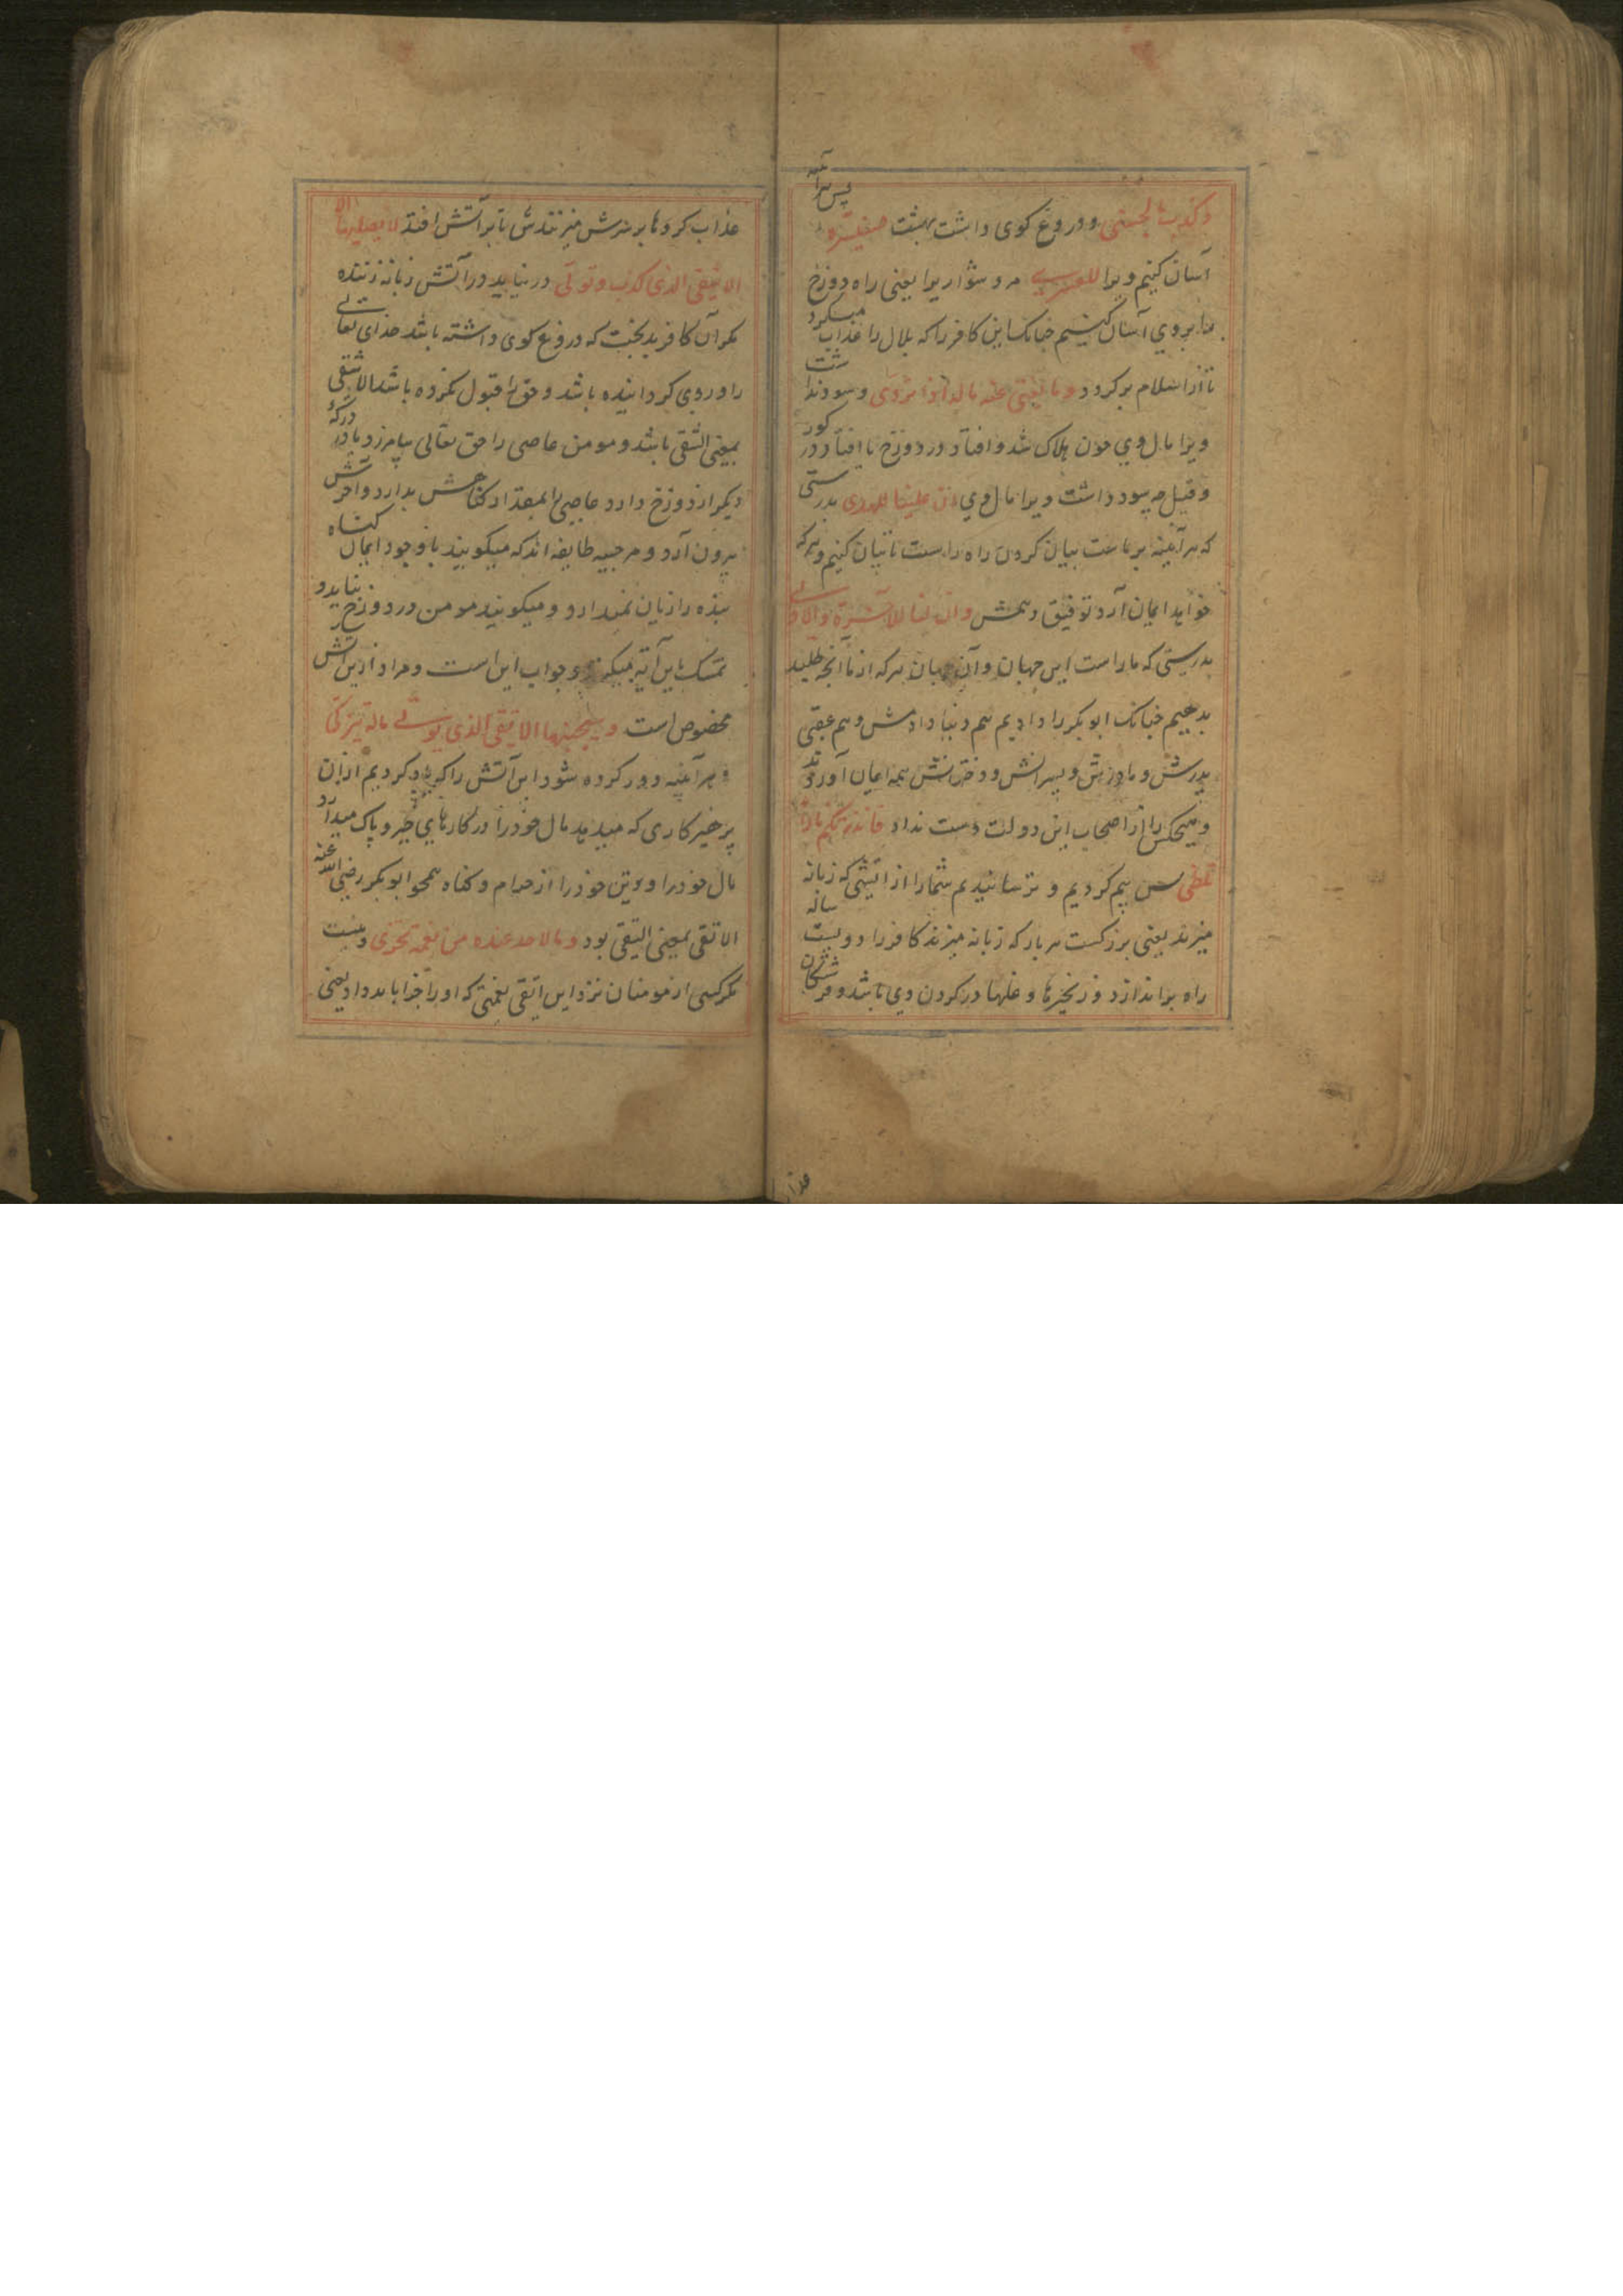 وکذب بالحسنی و دروغ کوی داشت بهشت فسنیسره پس هر آینه
آسان کنیم ویرا للعسری مر دشواریرا یعنی راه دوزخ
بروی آسان کنیم چنانک این کافر را که بلال را عذاب میکرد
تا از اسلام برکردد وما یغنی عنه ماله اذا تردی و سود نداشت
ویرا مال وی چون هلاک شد و افتاد در دوزخ یا افتاد در کور
و قیل چه سود داشت ویرا مال وی ان علینا للهدی بدرستی
که هر آینه بر ماست بیان کردن راه راست تا بیان کنیم و هر که
خواهد ایمان آرد توفیق دهمش وان لنا للآخرة والاولی
بدرستی که ماراست این جهان و آن جهان هر که از ما آنچه طلبد
بدهیم چنانک ابوبکر را دادیم هم دنیا دادمش و هم عقبی
پدرش و مادرش و پسرانش و دخترانش همه ایمان آوردند
و هیچکس را از اصحاب این دولت دست نداد فانذرتکم نارا
تلظی پس بیم کردیم و ترسانیدیم شمارا از آتشی که زبانه
میزند یعنی بزرکست هر بار که زبانه میزند کافر را دویست ساله
راه براندازد و زنجیرها و غلها در کردن وی باشد و فرشتکان
عذاب
عذاب کرزها بر سرش میزنندش تا بر آتش افتد لا یصلیها الا
الاشقی الذی کذب وتولی در نیاید در آتش زبانه زننده
مکر آن کافر بدبخت که دروغ کوی داشته باشد خدای تعالی
را و روی کردانیده باشد و حق را قبول نکرده باشد الاشقی
بمعنی الشقی باشد و مومن عاصی را حق تعالی بیامرزد یا در درکه
دیکر از دوزخ دارد عاصی را بمقدار کناهش بدارد و آخرش
بیرون آرد و مرجیه طایفه اند که میکویند با وجود ایمان کناه
بنده را زیان نمیدارد و میکویند مومن در دوزخ نیاید و
تمسک باین آیة میکنند و جواب این است و مراد ازین آتش
مخصوص است وسیجنبها الاتقی الذی یوتی ماله یتزکی
و هر آینه دور کرده شود این آتش را که یاد کردیم از آن
پرهیزکاری که میدهد مال خود را در کارهای خیر و پاک میدارد
مال خود را و تن خود را از حرام و کناه همچو ابوبکر رضی الله عنه
الاتقی بمعنی التقی بود وما لاحد عنده من نعمة تجزی و نیست
مکر کسی از مومنان نزد این اتقی نعمتی که او را جزا باید داد یعنی